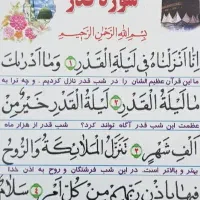 سوره قدر
بِسْمِ اللَّهِ الرَّحْمَٰنِ الرَّحِيمِ
إِنَّا أَنْزَلْنَاهُ فِي لَيْلَةِ الْقَدْرِ ﴿۱﴾ وَمَا أَدْرَاكَ
ما این قرآن عظیم الشان را در شب قدر نازل کردیم . و چه ترا به
مَا لَيْلَةُ الْقَدْرِ ﴿۲﴾ لَيْلَةُ الْقَدْرِ خَيْرٌ مِنْ
عظمت این شب قدر آگاه تواند کرد؟ شب قدر از هزار ماه
أَلْفِ شَهْرٍ ﴿۳﴾ تَنَزَّلُ الْمَلَائِكَةُ وَالرُّوحُ
بهتر و بالاتر است . در این شب فرشتگان و روح به اذن خدا
فِيهَا بِإِذْنِ رَبِّهِمْ مِنْ كُلِّ أَمْرٍ ﴿۴﴾ سَلَامٌ